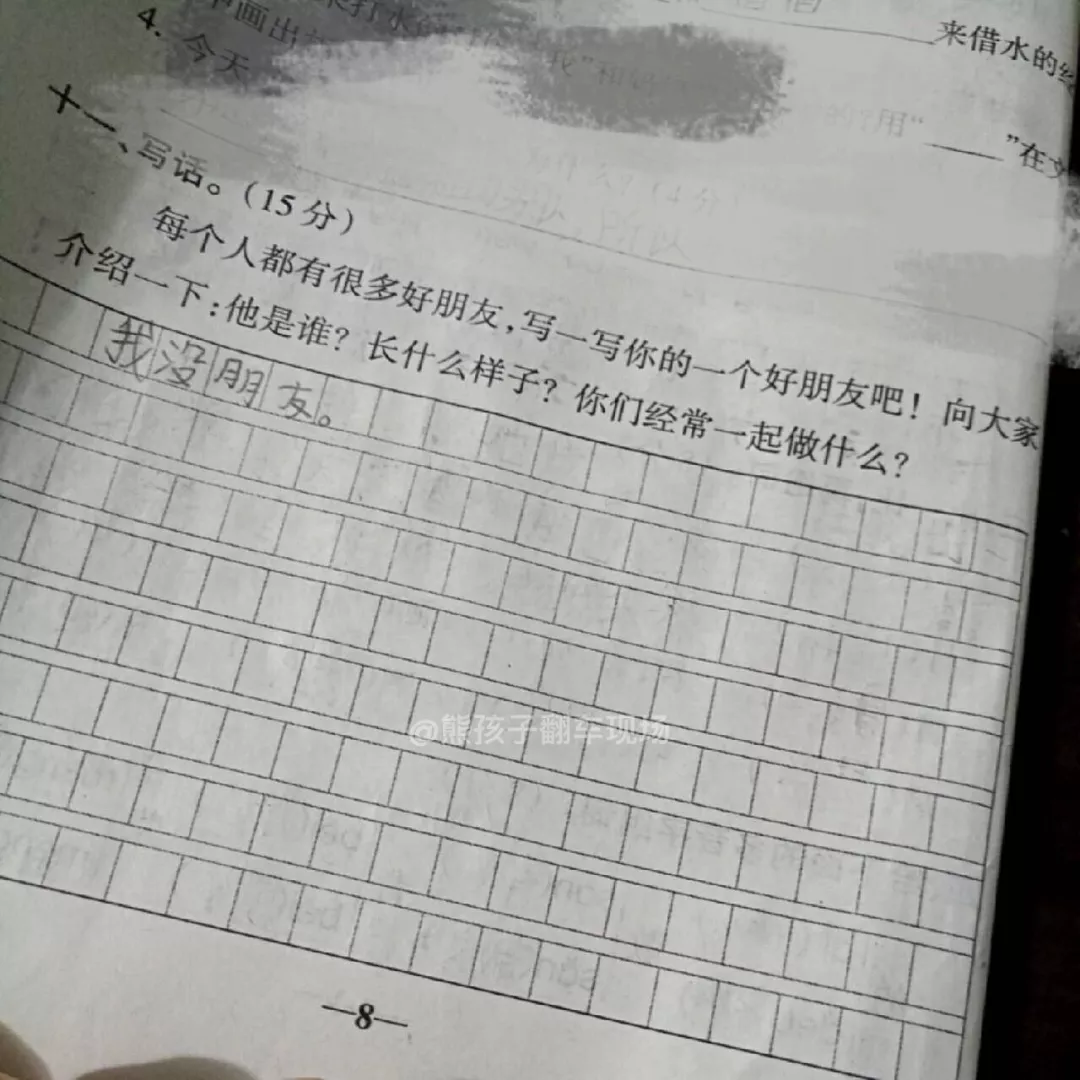 来借水的
4. 今天
用“____”在
十一、写话。(15分)
每个人都有很多好朋友,写一写你的一个好朋友吧!向大家
介绍一下:他是谁?长什么样子?你们经常一起做什么?
我没朋友。
@熊孩子翻车现场
—8—